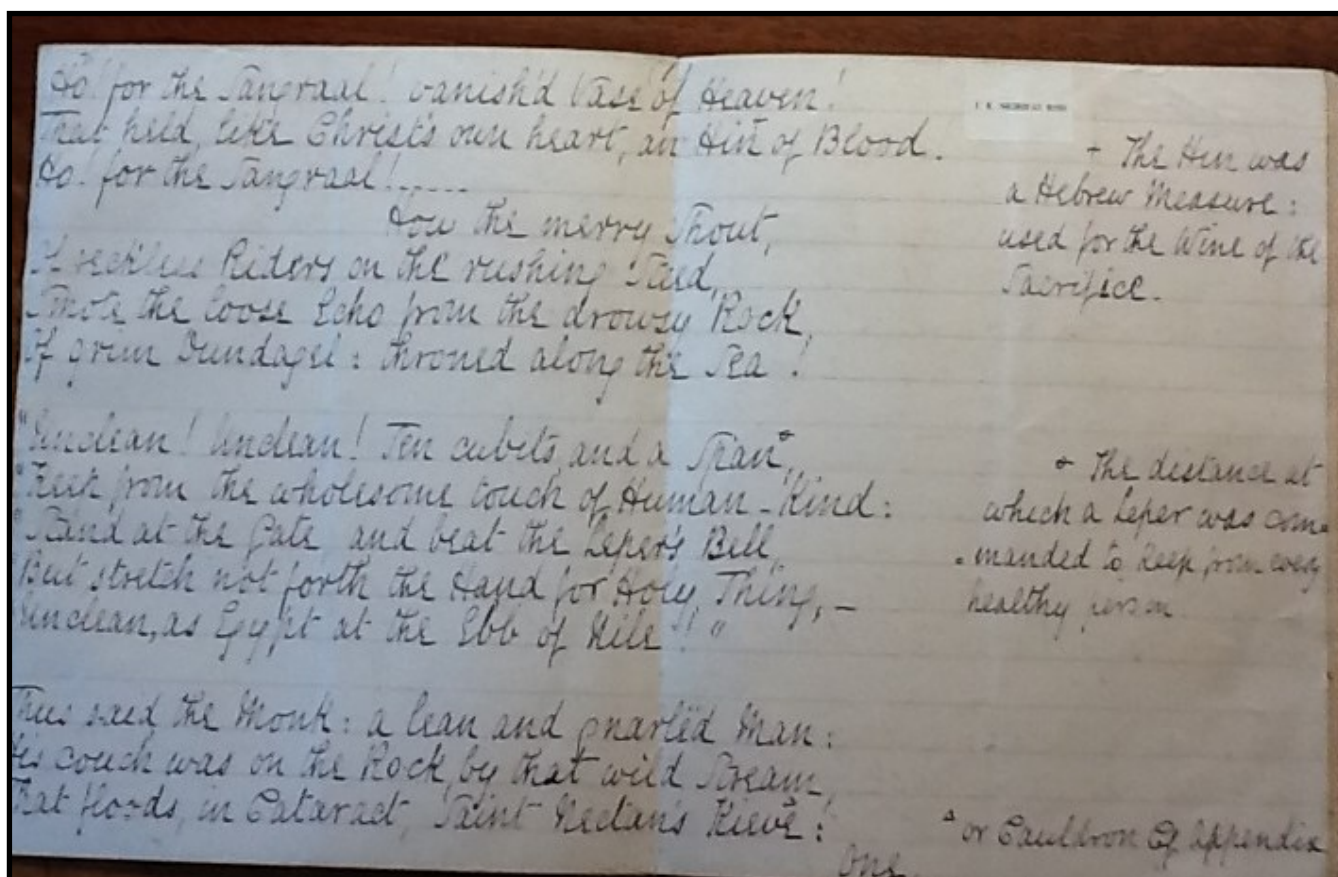 Ho! for the Sangraal! vanish'd Vase of Heaven!
That held, like Christ's own heart, an Hin+ of Blood.
Ho! for the Sangraal!......
How the merry Shout,
Of reckless Riders on the rushing Steed,
Smote the loose Echo from the drowsy Rock,
Of grim Dundagel: throned along the Sea!
"Unclean! Unclean! Ten cubits, and a Span+,
"Keep from the wholesome touch of Human-Kind:
"Stand at the Gate, and beat the Leper's Bell,
"But stretch not forth the Hand for Holy Thing, –
Unclean, as Egypt at the Ebb of Nile!"
Thus said the Monk: a lean and gnarlëd Man:
His couch was on the Rock, by that wild Stream,
That floods, in Cataract, Saint Nectan's Kieve:
One
+ The Hin was
a Hebrew Measure:
used for the Wine of the
Sacrifice.
+ The distance at
which a Leper was com=
=manded to keep from every
healthy person
or Cauldron Cf appendix